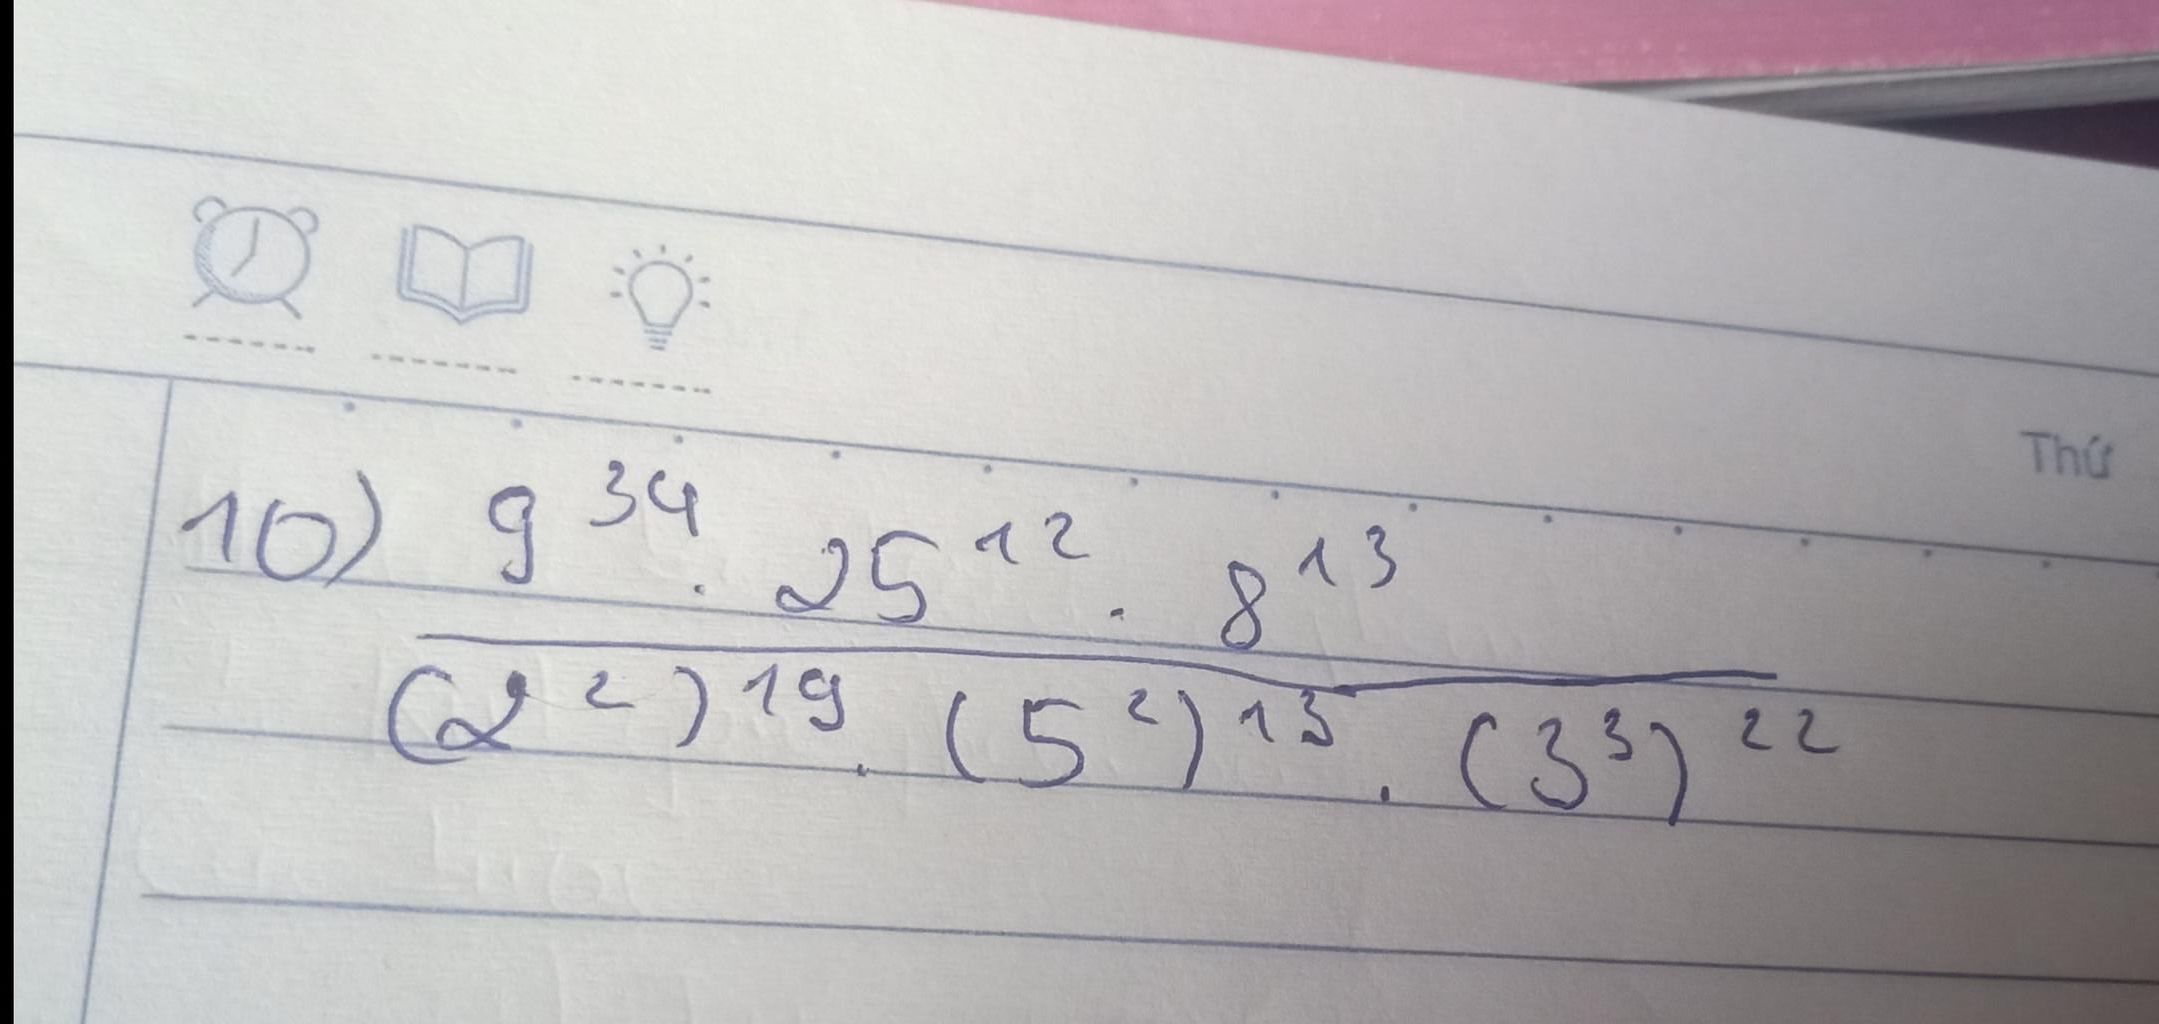 Thứ
10) 9^34 . 25^12 . 8^13
(2^2)^19 . (5^2)^13 . (3^3)^22